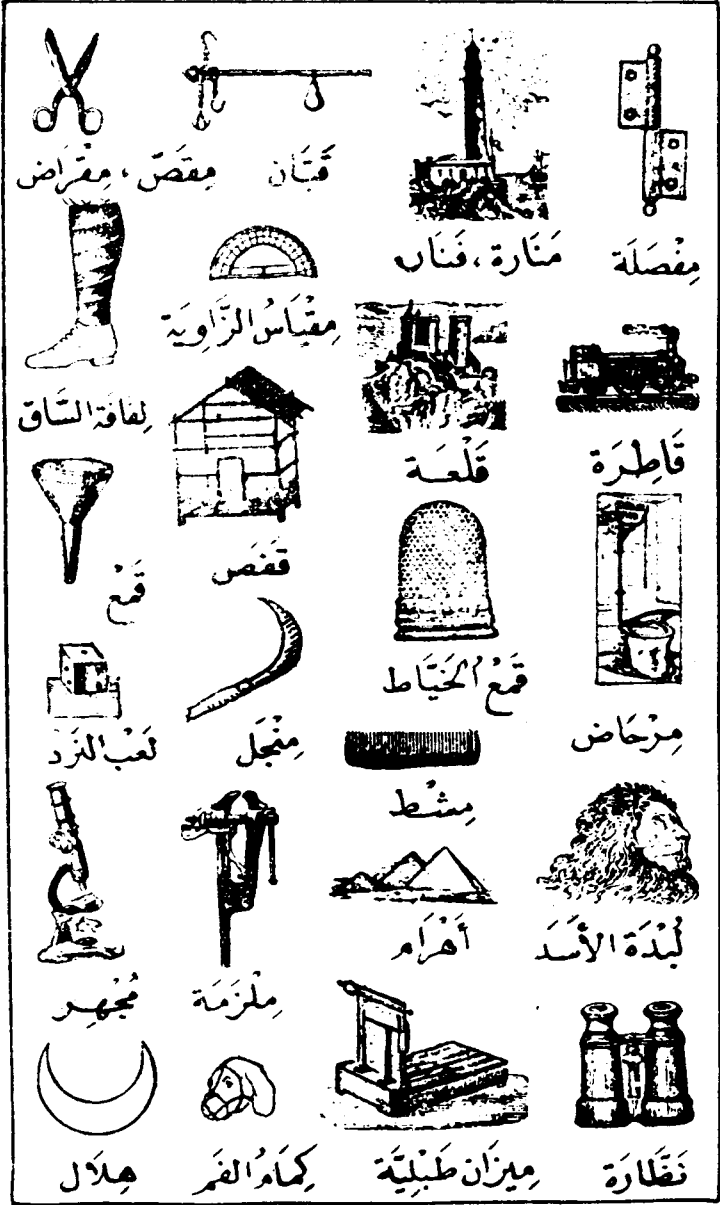 مِفْصَلَة
مَنَارَة ، فَنَار
قَبَّان
مِقَصّ ، مِقْرَاض
قَاطِرَة
قَلْعَة
مِقْيَاسُ الزَّاوِيَة
لِفَافَة السَّاق
مِرْحَاض
قَمْعُ الخَيَّاط
قَفَص
قَمْع
مِشْط
مِنْجَل
لَعْب النَرَد
لُبْدَة الأَسَد
أَهْرَام
مِلْزَمَة
مُجْهِر
نَظَّارَة
مِيزَان طَبْلِيَّة
كِمَامُ الفَم
هِلَال